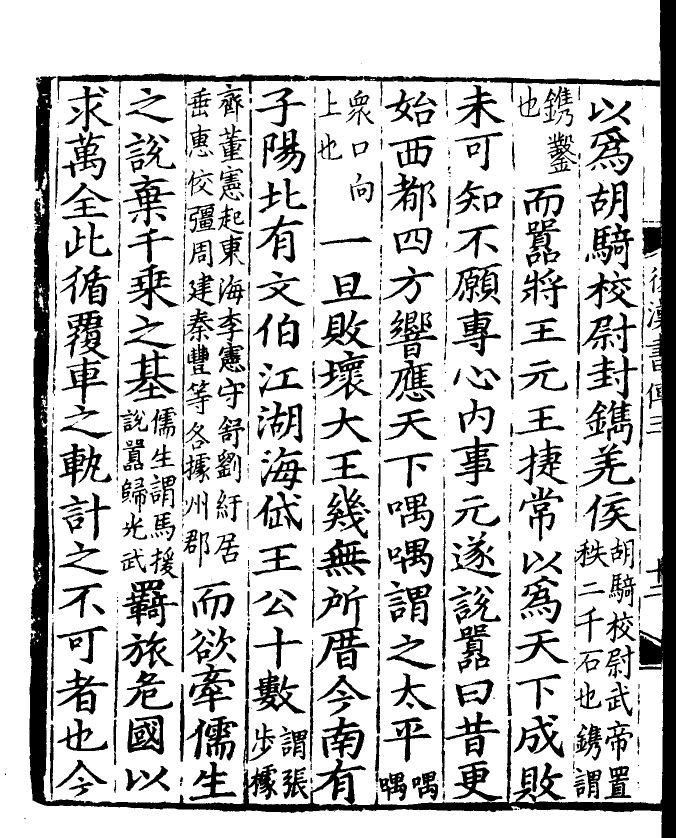 後漢書傳三
十二
以爲胡騎校尉封鐫羌侯胡騎校尉武帝置秩二千石也鐫謂
鐫鑿也而囂將王元王捷常以爲天下成敗
未可知不願專心內事元遂說囂曰昔更
始西都四方響應天下喁喁謂之太平喁喁
衆口向上也一旦敗壞大王幾無所厝今南有
子陽北有文伯江湖海岱王公十數謂張步據
齊董憲起東海李憲守舒劉紆居垂惠佼彊周建秦豐等各據州郡而欲牽儒生
之說棄千乘之基儒生謂馬援說囂歸光武羇旅危國以
求萬全此循覆車之軌計之不可者也今